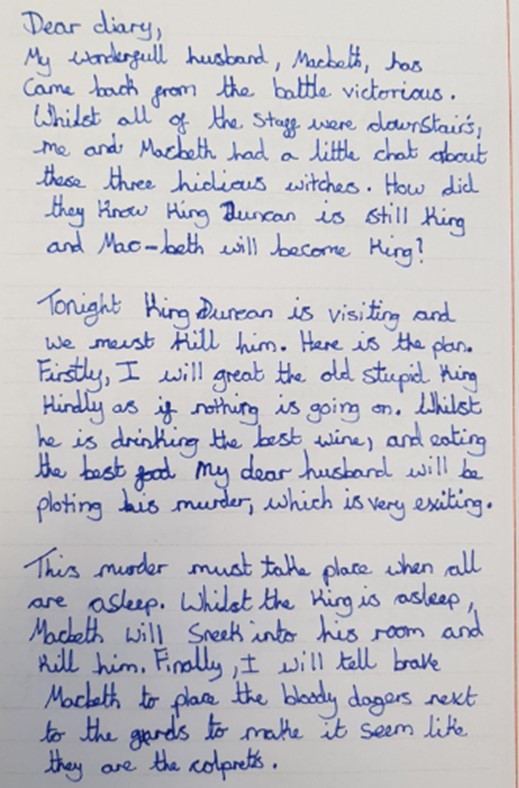 Dear diary,
My wonderfull husband, Macbeth, has
came back from the battle victorious.
Whilst all of the staff were downstairs,
me and Macbeth had a little chat about
these three hidious witches. How did
they know King Duncan is still King
and Mac-beth will become King?
Tonight King Duncan is visiting and
we meust kill him. Here is the plan.
Firstly, I will great the old stupid King
kindly as if nothing is going on. Whilst
he is drinking the best wine, and eating
the best food My dear husband will be
ploting his murder, which is very exiting.
This murder must take place when all
are asleep. Whilst the King is asleep,
Macbeth will sneek into his room and
kill him. Finally, I will tell brake
Macbeth to place the bloody dagers next
to the gards to make it seem like
they are the colprets.